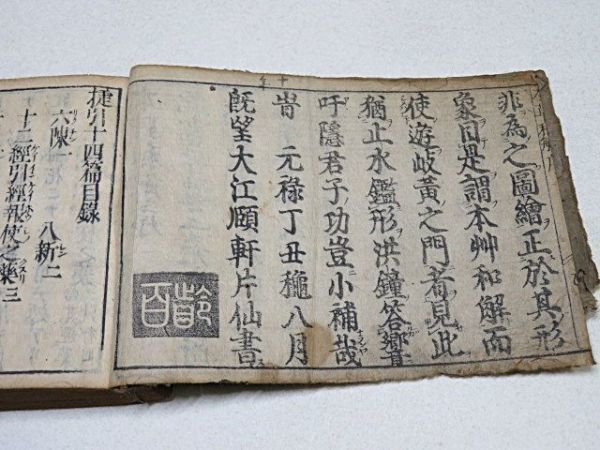 非為之圖繪正於其形
象目是謂本艸和解而
使遊岐黃之門者見此
猶止水鑑形洪鐘答響
吁隱君子功豈小補哉
旹 元禄丁丑龝八月
既望大江頤軒片仙書
百齡
捷引十四篇目錄
六陳一 八新二
十二經引經報使之藥三